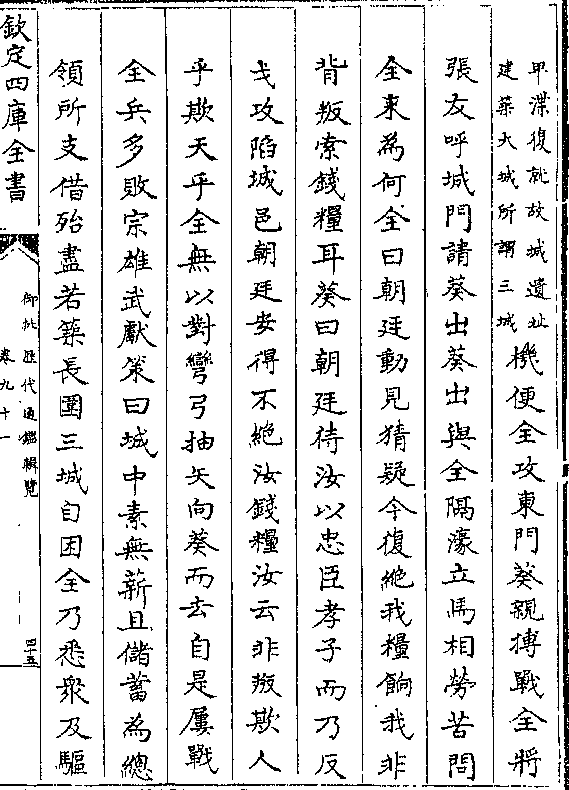 甲渫復就故城遺址
建築大城所謂三城
機便全攻東門葵親搏戰全將
張友呼城門請葵出葵出與全隔濠立馬相勞苦問
全來為何全曰朝廷動見猜疑今復絶我糧餉我非
背叛索錢糧耳葵曰朝廷待汝以忠臣孝子而乃反
戈攻陷城邑朝廷安得不絶汝錢糧汝云非叛欺人
乎欺天乎全無以對彎弓抽矢向葵而去自是屢戰
全兵多敗宗雄武獻策曰城中素無薪且儲蓄為總
領所支借殆盡若築長圍三城自困全乃悉衆及驅
欽定四庫全書
御批歷代通鑑輯覽
卷九十一
四十五